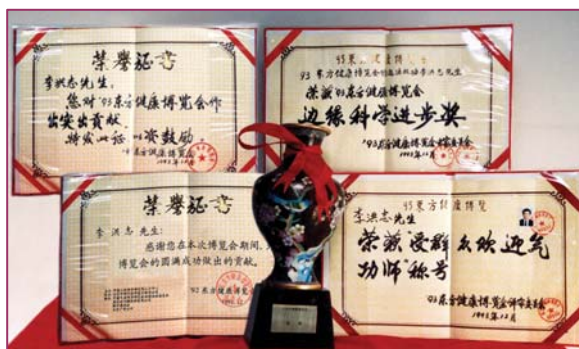 荣誉证书
李洪志先生:
您对'93东方健康博览会作
出突出贡献。
特发此证 以资鼓励。
'93东方健康博览会
1993年12月
93东方健康博览会
荣获'93东方健康博览会
边缘科学进步奖
1993年12月
荣誉证书
李洪志先生:
感谢您在本次博览会期间,为
博览会的圆满成功做出的贡献。
'92东方健康博览会
93东方健康博览
李洪志先生
荣获"受群众欢迎气
功师"称号
'93东方健康博览会评审委员会
1993年12月